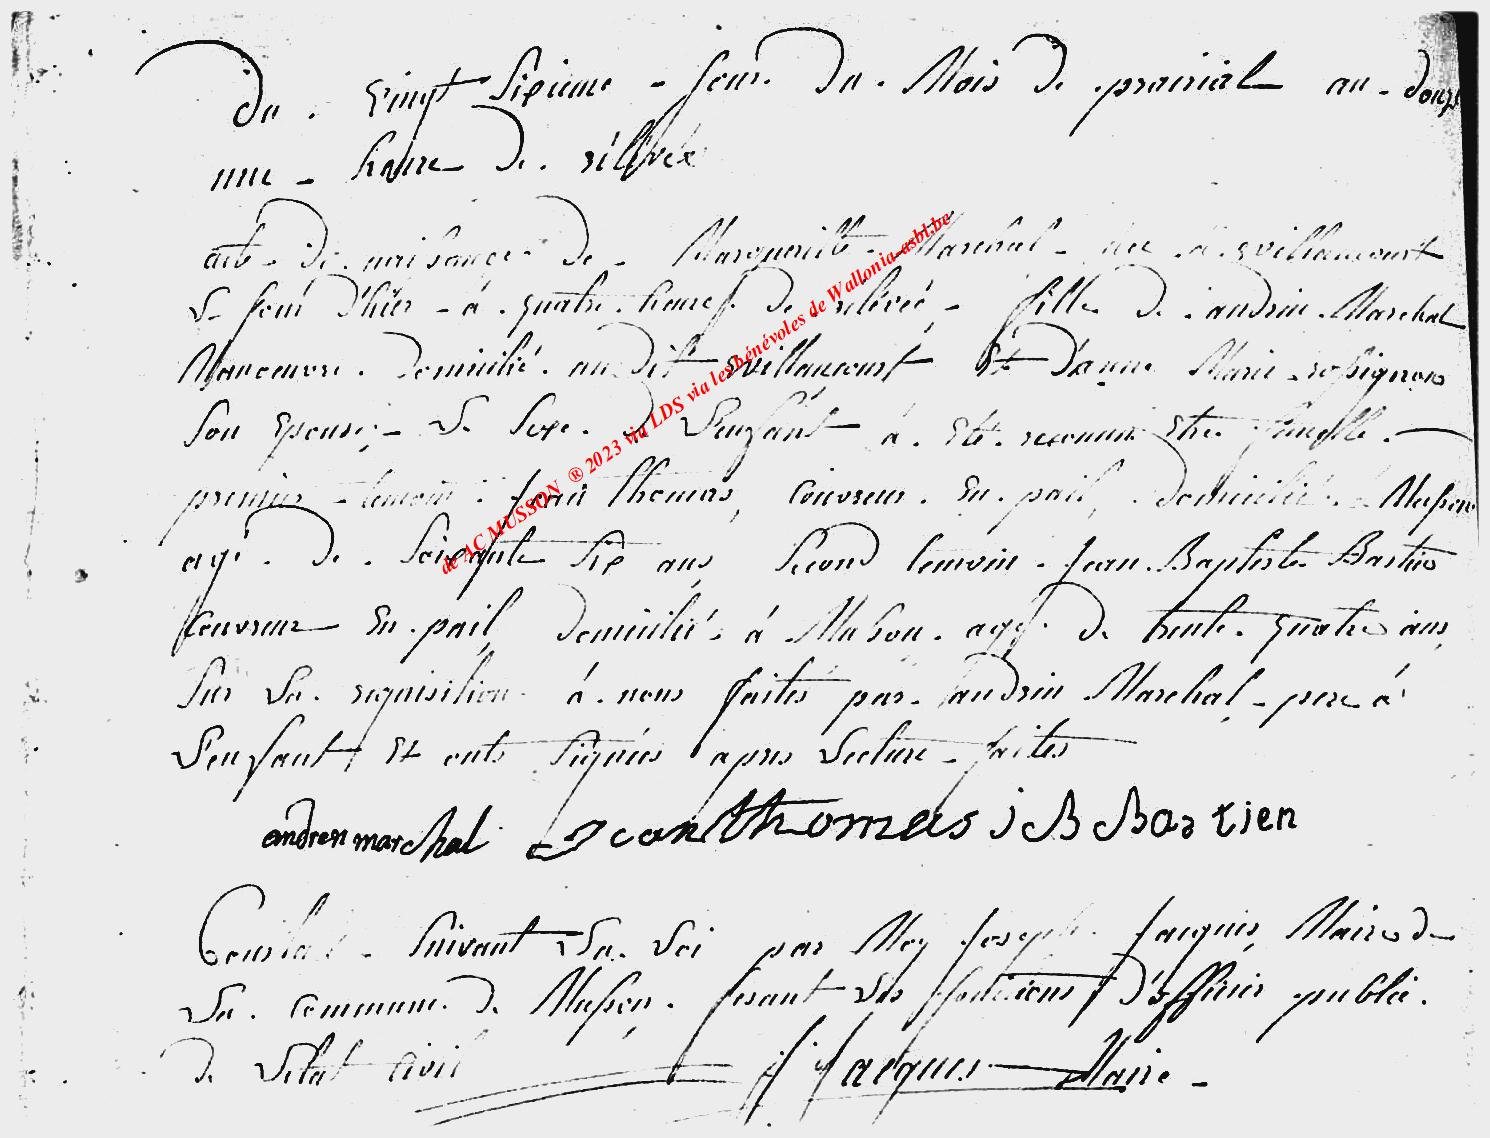 Du . vingt sixieme - jour du . Mois de . prairial an - douze
une - heure de . rellevée
acte - de naissance de - Margueritte - Marechal - née à willancourt
Le jour d'hier - à . quatre heures de . relevée - fille de . andrin . Marechal
Manoeuvre . domicilié . audit willancourt Et d'anne Marie - rossignon
son Epouse, - Le sexe . De L'enfant à . Eté . reconnu être femelle . -
premier - temoin : jean thomas, couvreur . En . pail, domicilié . à Musson
agé . de . soixante six ans, second temoin - jean . Baptiste Bastien
couvreur En . pail, domicilié à Musson . agé . de trente - quatre ans,
sur La . requisition à . nous faites par - andrin Marechal - pere à
L'enfant, Et onts signées apres Lecture - faites
andren marchal Jean thomas j B Bastien
Constaté - suivant La . Loi par Moy joseph . jacques, Maire de
La . commune . de Musson . fesant Les fonctions d'officier public .
de Letat civil J Jacques Maire -
de AC MUSSON ® 2023 via LDS via les bénévoles de Wallonia-asbl.be